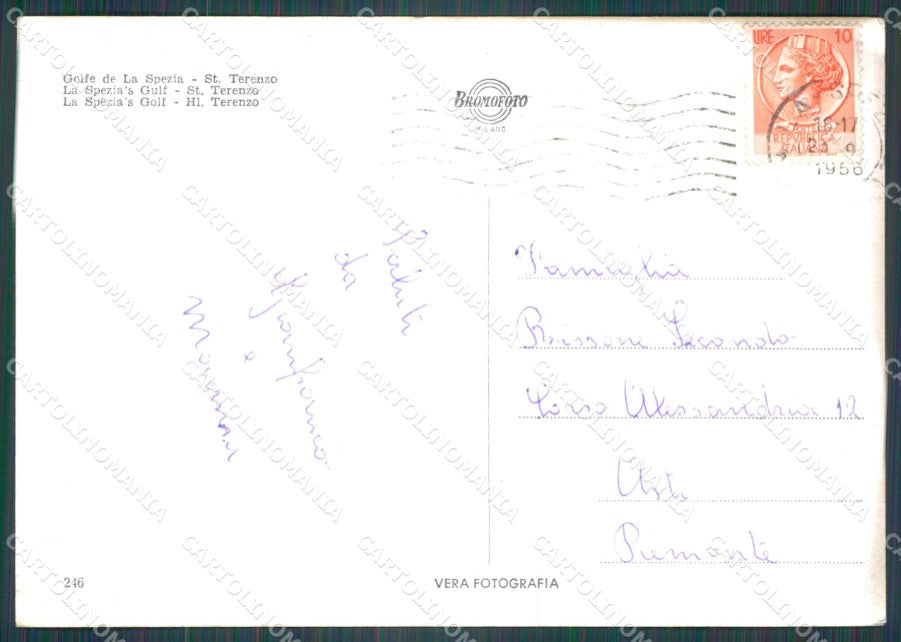 Golfe de La Spezia - St. Terenzo
La Spezia's Gulf - St. Terenzo
La Spezia's Golf - Hl. Terenzo
BROMOFOTO
MILANO
LIRE 10
POSTE
REPVBBLICA
ITALIANA
16-17
23
1956
Saluti
da
Gianfranco
e
Famiglia
Rissone Secondo
Corso Alessandria 12
Asti
Piemonte
246
VERA FOTOGRAFIA
CARTOLINOMANIA